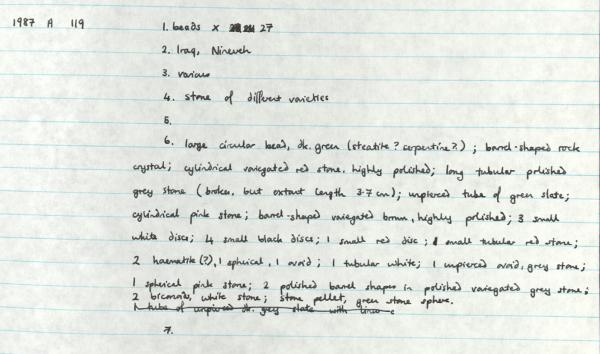 1987 A 119
1. beads x 27
2. Iraq, Nineveh
3. various
4. stone of different varieties
5.
6. large circular bead, dk. green (steatite? serpentine?); barrel-shaped rock
crystal; cylindrical variegated red stone, highly polished; long tubular polished
grey stone (broken, but extant length 3.7 cm); unpierced tube of green slate;
cylindrical pink stone; barrel-shaped variegated brown, highly polished; 3 small
white discs; 4 small black discs; 1 small red disc; 1 small tubular red stone;
2 haematite (?), 1 spherical, 1 ovoid; 1 tubular white; 1 unpierced ovoid, grey stone;
1 spherical pink stone; 2 polished barrel shapes in polished variegated grey stone;
2 biconoid, white stone; stone pellet, green stone sphere.
1 tube of unpierced dk. grey slate with
7.